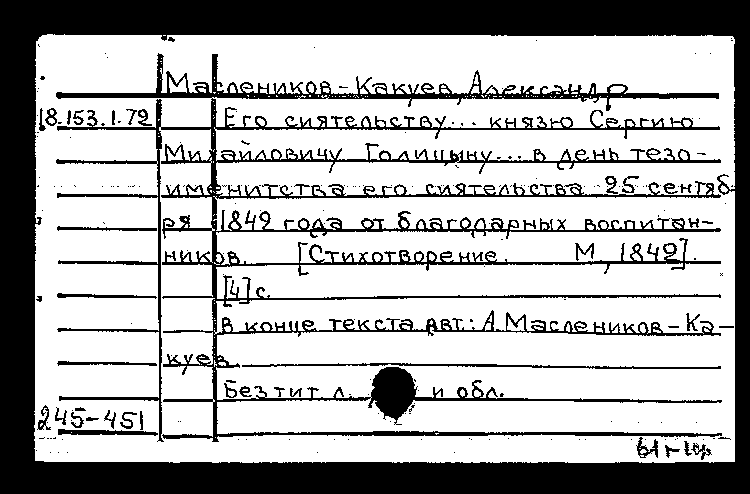 Маслеников-Какуев, Александр
18.153.1.72 Его сиятельству... князю Сергию
Михайловичу Голицыну... в день тезо-
именитства его сиятельства 25 сентяб-
ря 1842 года от благодарных воспитан-
ников. [Стихотворение. М., 1842].
[4] с.
В конце текста авт.: А. Маслеников-Ка-
куев.
Без тит. л. и обл.
245-451